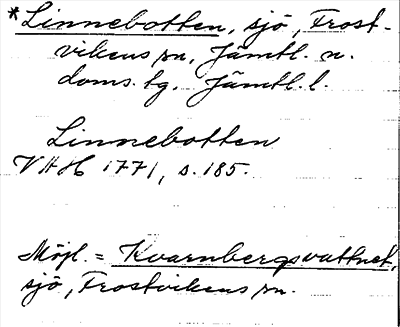 *Linnebotten, sjö, Frost-
vikens sn, Jämtl. n.
doms. tg, Jämtl. l.
Linnebotten
VAH 1771, s. 185.
Möjl. = Kvarnbergsvattnet,
sjö, Frostvikens sn.